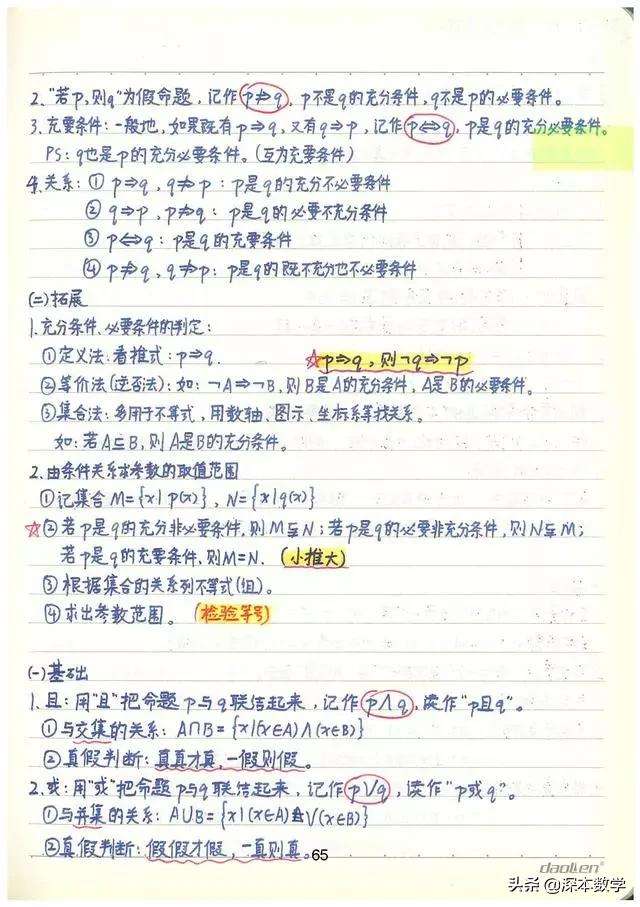 2. "若p,则q"为假命题，记作p⇏q，p不是q的充分条件，q不是p的必要条件。
3. 充要条件：一般地，如果既有p⇒q，又有q⇒p，记作p⇔q，p是q的充分必要条件。
PS：q也是p的充分必要条件。(互为充要条件)
4. 关系：① p⇒q，q⇏p：p是q的充分不必要条件
② q⇒p，p⇏q：p是q的必要不充分条件
③ p⇔q：p是q的充要条件
④ p⇏q，q⇏p：p是q的既不充分也不必要条件
(二)拓展
1. 充分条件、必要条件的判定：
①定义法：看推式：p⇒q. ☆p⇒q，则¬q⇒¬p
②等价法(逆否法)：如：¬A⇒¬B，则B是A的充分条件，A是B的必要条件。
③集合法：多用于不等式，用数轴、图示、坐标系等找关系。
如：若A⊆B，则A是B的充分条件。
2. 由条件关系求参数的取值范围
①记集合M={x|p(x)}，N={x|q(x)}
☆②若p是q的充分非必要条件，则M⫋N；若p是q的必要非充分条件，则N⫋M；
若p是q的充要条件，则M=N. (小推大)
③根据集合的关系列不等式(组)。
④求出参数范围。(检验等号)
(一)基础
1. 且：用"且"把命题p与q联结起来，记作p∧q，读作"p且q"。
①与交集的关系：A∩B={x|(x∈A)∧(x∈B)}
②真假判断：真真才真，一假则假。
2. 或：用"或"把命题p与q联结起来，记作p∨q，读作"p或q"。
①与并集的关系：A∪B={x|(x∈A)∨(x∈B)}
②真假判断：假假才假，一真则真。65
daolien®
头条@深本数学